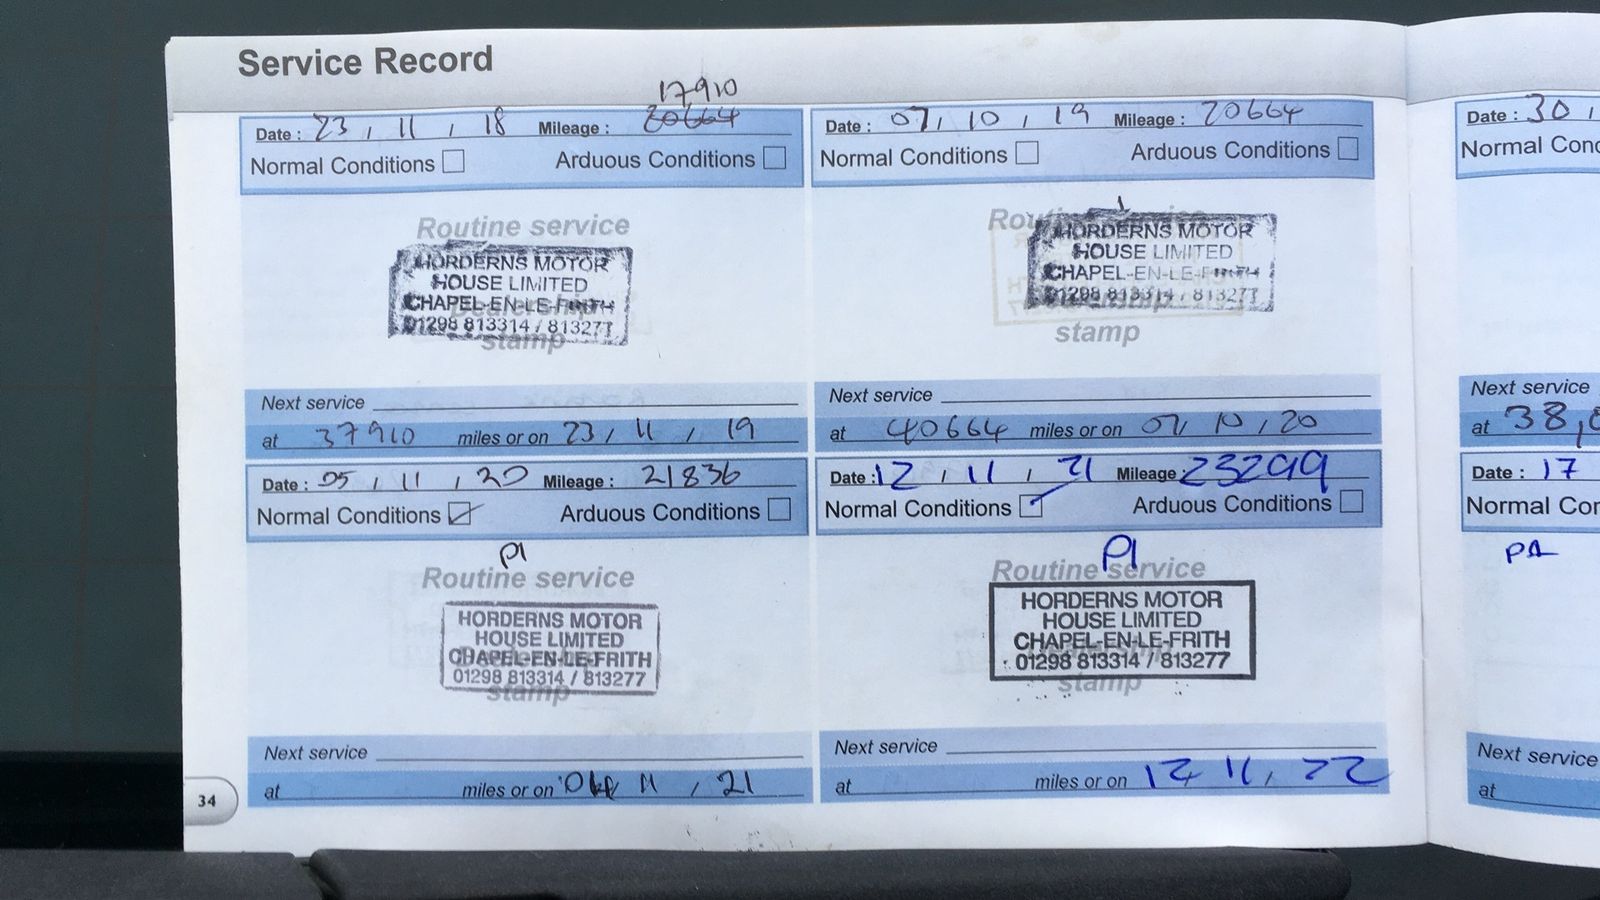 Service Record
17910
Date : 23 , 11 , 18 Mileage : 20664
Normal Conditions Arduous Conditions
Routine service
HORDERNS MOTOR
HOUSE LIMITED
CHAPEL-EN-LE-FRITH
Dealership
01298 813314 / 813277
stamp
Next service
at 37910 miles or on 23 , 11 , 19
Date : 07, 10 , 19 Mileage : 20664
Normal Conditions Arduous Conditions
Routine service
HORDERNS MOTOR
HOUSE LIMITED
CHAPEL-EN-LE-FRITH
01298 813314 / 813277
stamp
Next service
at 40664 miles or on 07, 10 , 20
Date : 05 , 11 , 20 Mileage : 21836
Normal Conditions Arduous Conditions
PI
Routine service
HORDERNS MOTOR
HOUSE LIMITED
CHAPEL-EN-LE-FRITH
Dealership
01298 813314 / 813277
stamp
Next service
at miles or on 11 , 21
Date : 12 , 11 , 21 Mileage : 23299
Normal Conditions Arduous Conditions
PI
Routine service
HORDERNS MOTOR
HOUSE LIMITED
CHAPEL-EN-LE-FRITH
Dealership
01298 813314 / 813277
stamp
Next service
at miles or on 12 11 , 22
34
Date : 30 ,
Normal Conc
Next service
at 38,
Date : 17
Normal Cor
Next service
at